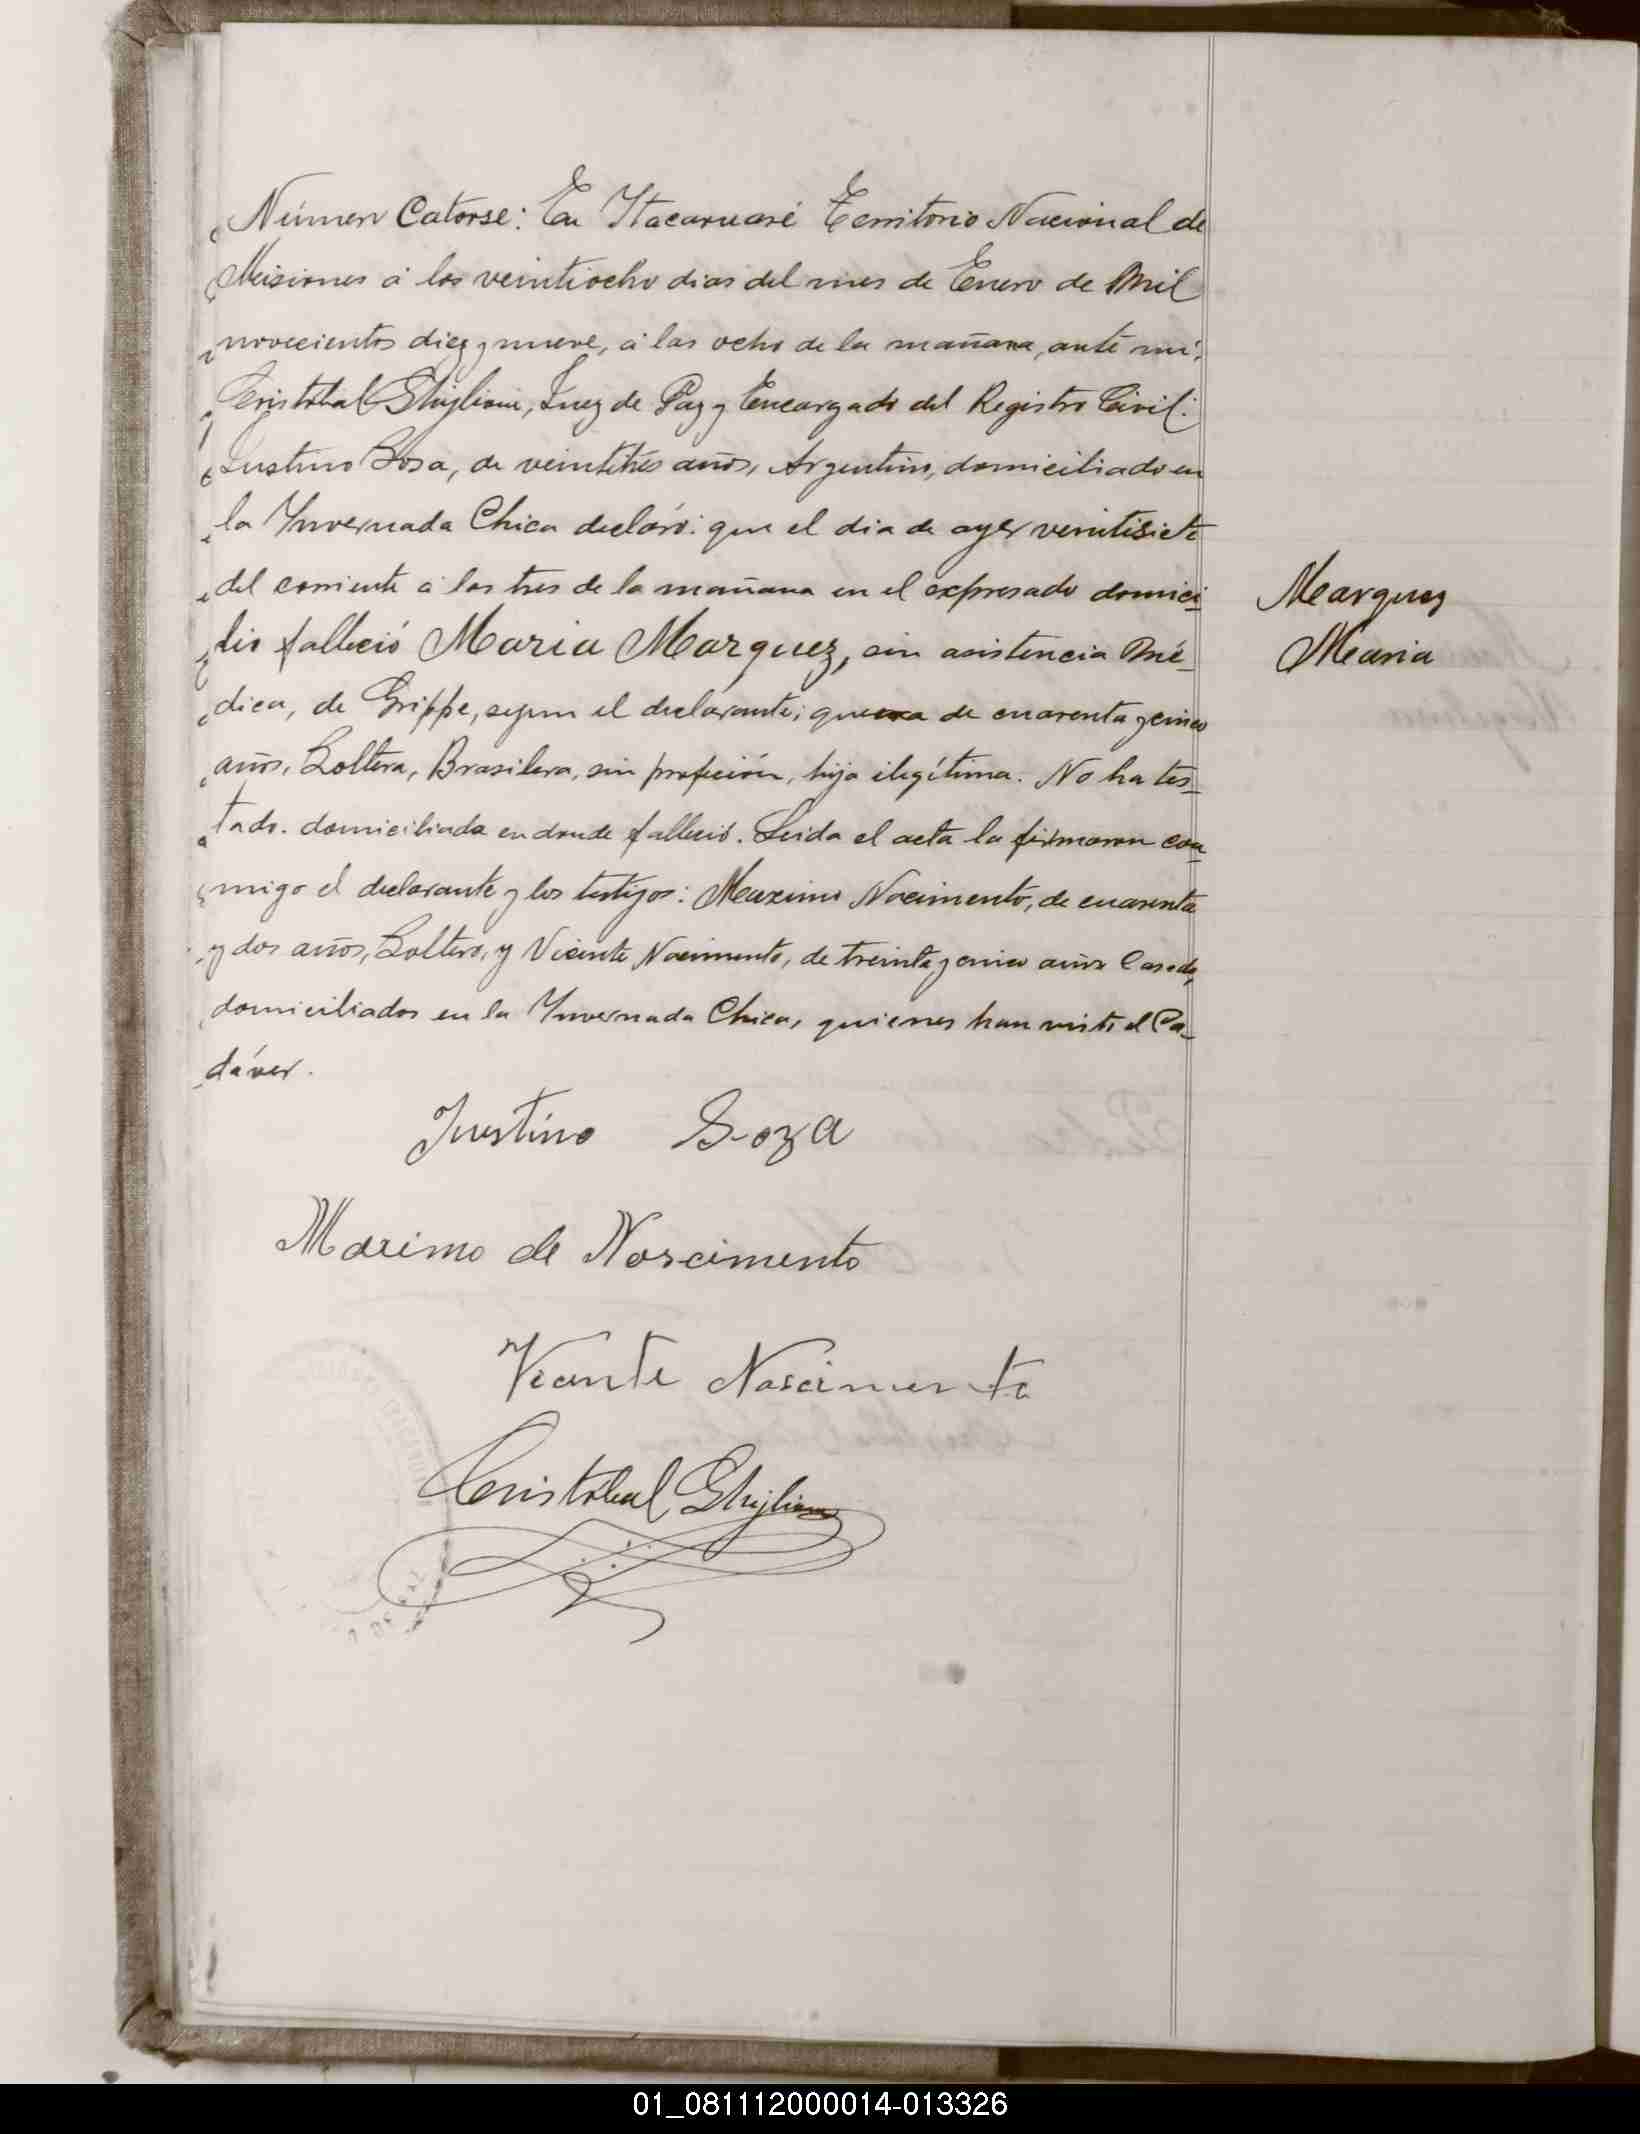 Número Catorse: En Ytacaruaré Territorio Nacional de
Misiones á los veintiocho dias del mes de Enero de Mil
novecientos diez y nueve, á las ocho de la mañana, ante mí,
Cristobal Ghiglione, Juez de Paz y Encargado del Registro Civil:
Justino Sosa, de veintitrés años, Argentino, domiciliado en
la Ynvernada Chica declaró: que el dia de ayer veintisiete
del corriente á las tres de la mañana en el expresado domici-
lio falleció Maria Marquez, sin asistencia Mé-
dica, de Grippe, segun el declarante; que era de cuarenta y cinco
años, Soltera, Brasilera, sin profeción, hija ilegítima. No ha tes-
tado. domiciliada en donde falleció. Leida el acta la firmaron con-
migo el declarante y los testigos: Maximo Nacimento, de cuarenta
y dos años, Soltero, y Vicente Nacimento, de treinta y cinco años Casado,
domiciliados en la Ynvernada Chica, quienes han visto el Ca-
dáver.
Marquez
Maria
Justino Soza
Maximo de Nascimento
Vicente Nascimento
Cristobal Ghiglione
01_081112000014-013326